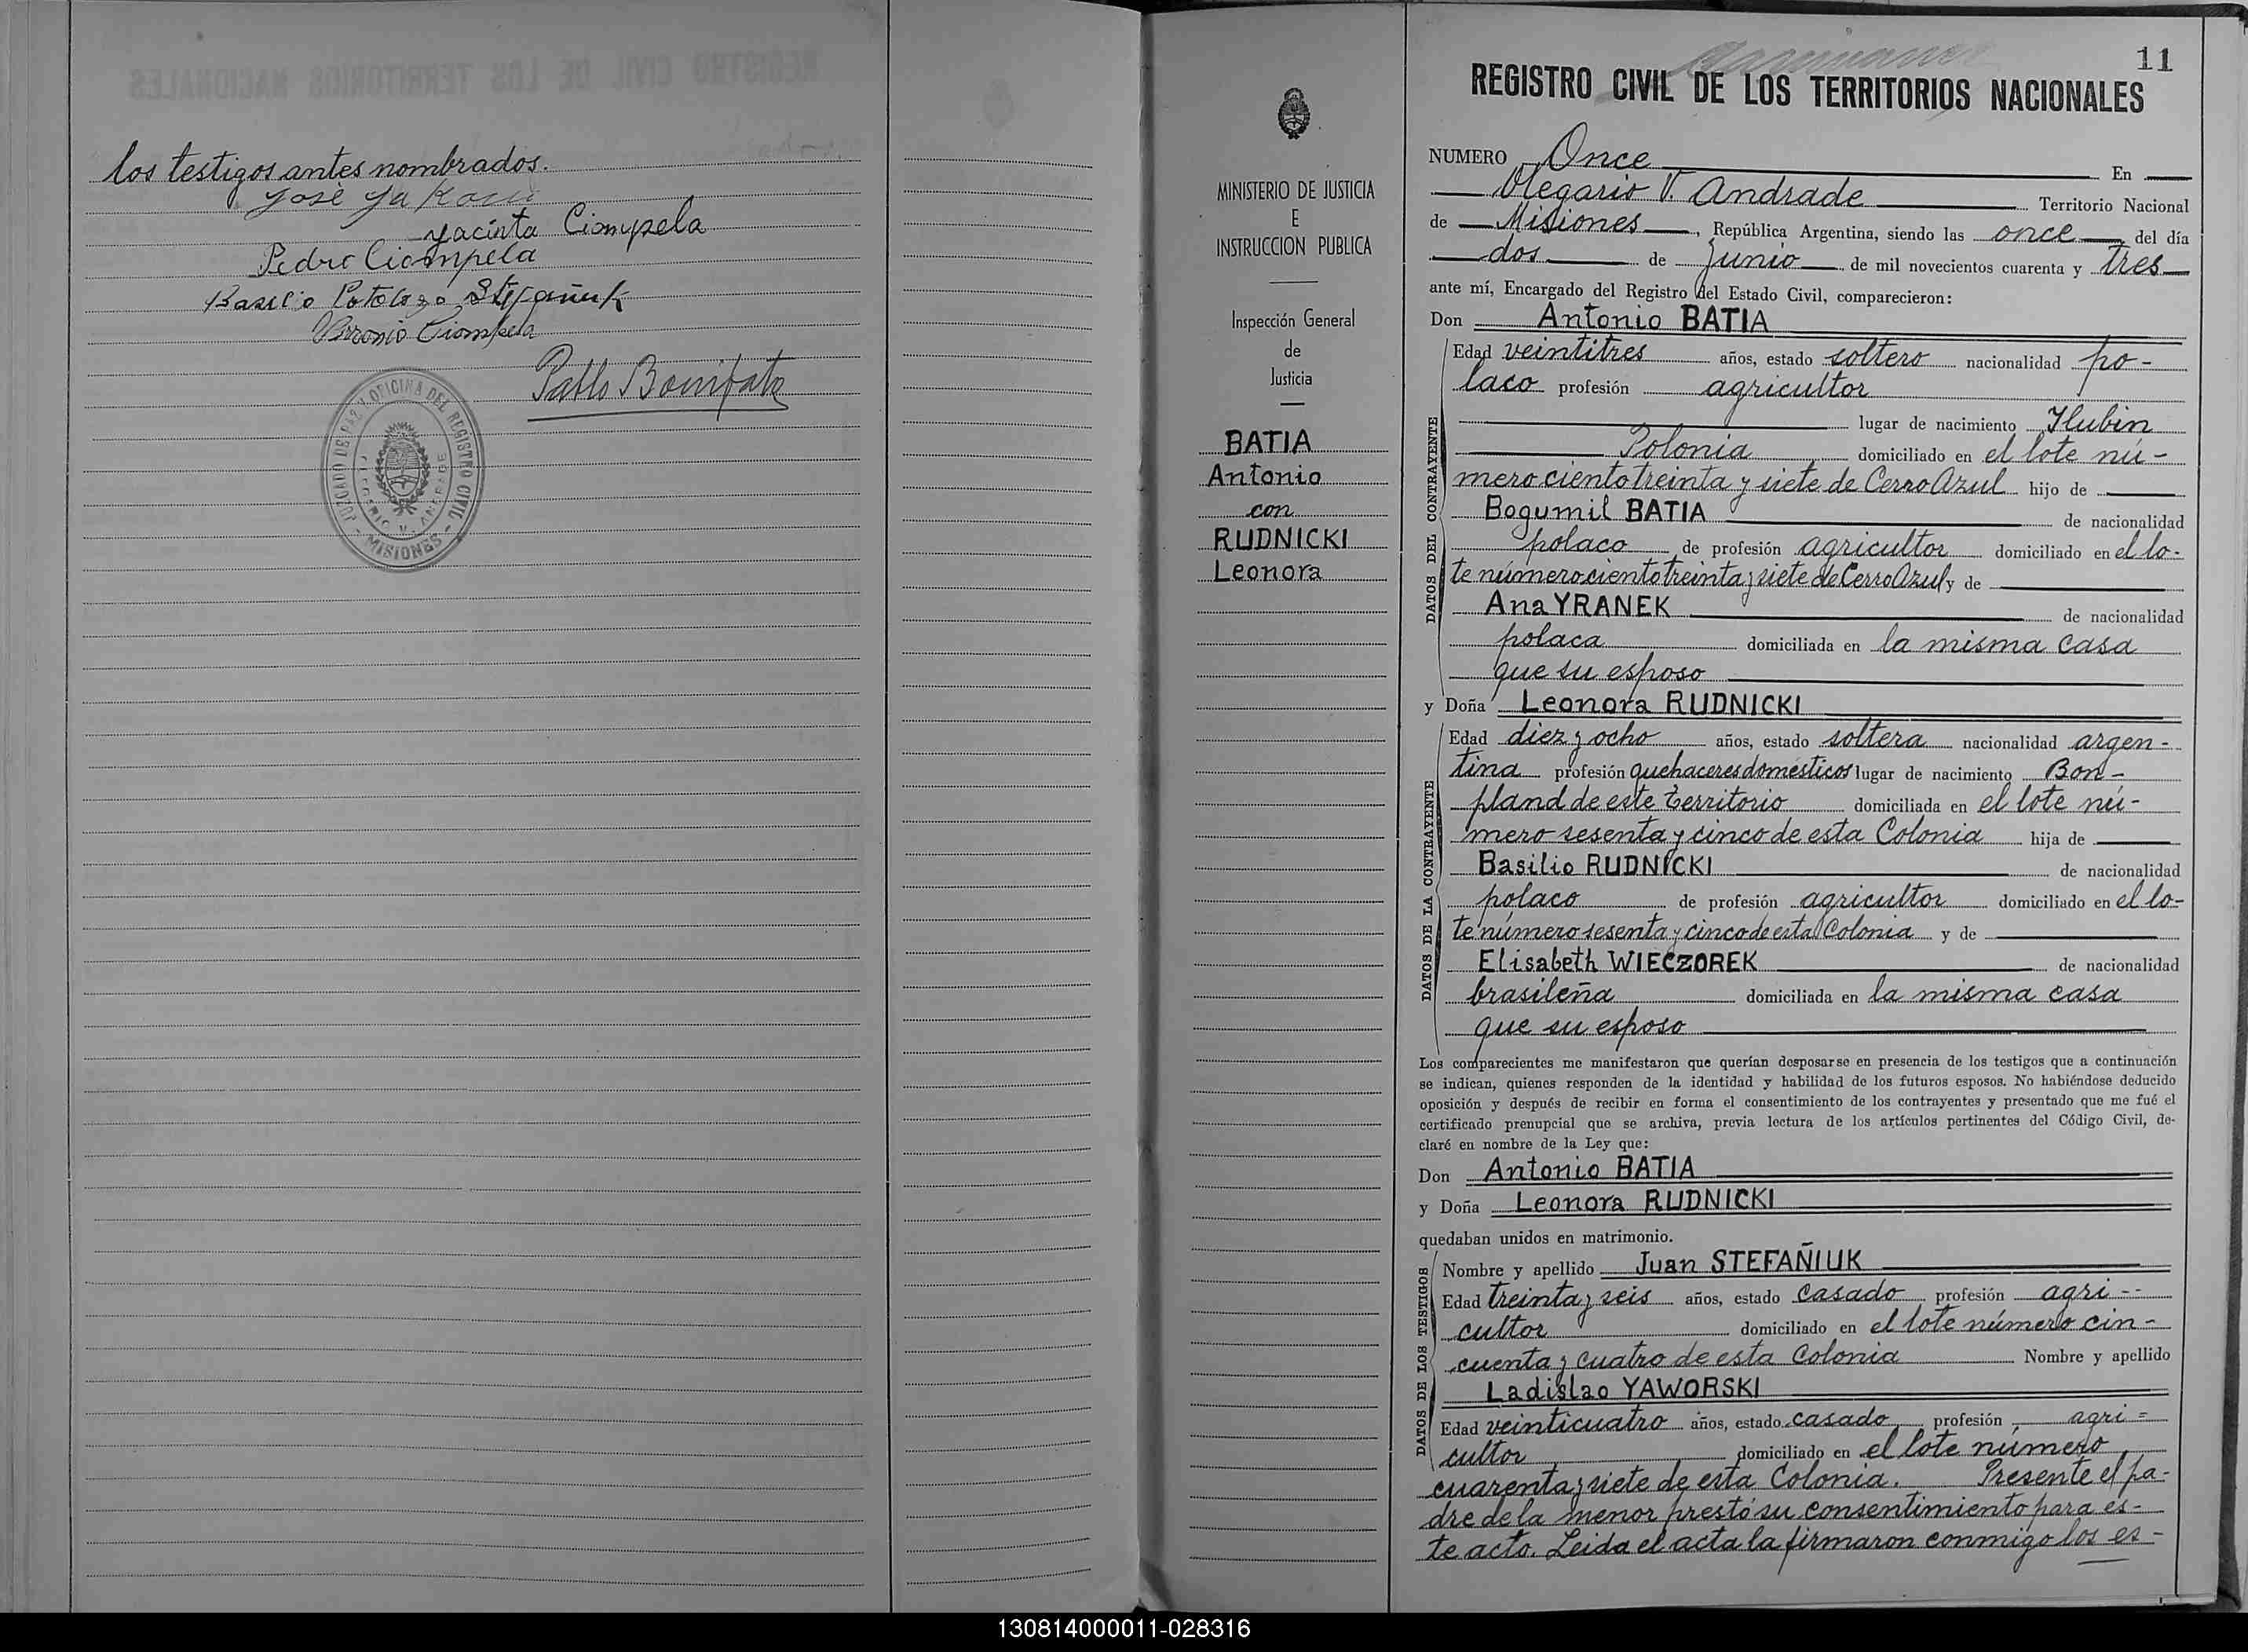 los testigos antes nombrados.
José
Jacinta Ciompela
Pedro Ciompela
Basilio Stefañuk
Ciompela
Pablo Bonifato
JUZGADO DE PAZ Y OFICINA DEL REGISTRO CIVIL
OLEGARIO V. ANDRADE
- MISIONES -
MINISTERIO DE JUSTICIA
E
INSTRUCCION PUBLICA
Inspección General
de
Justicia
BATIA
Antonio
con
RUDNICKI
Leonora
11
REGISTRO CIVIL DE LOS TERRITORIOS NACIONALES
NUMERO Once En
Olegario V. Andrade Territorio Nacional
de Misiones, República Argentina, siendo las once del día
dos de Junio de mil novecientos cuarenta y tres
ante mí, Encargado del Registro del Estado Civil, comparecieron:
Don Antonio BATIA
DATOS DEL CONTRAYENTE
Edad veintitres años, estado soltero nacionalidad po-
laco profesión agricultor
lugar de nacimiento Hubin
Polonia domiciliado en el lote nú-
mero ciento treinta y siete de Cerro Azul hijo de
Bogumil BATIA de nacionalidad
polaco de profesión agricultor domiciliado en el lo-
te número ciento treinta y siete de Cerro Azul y de
Ana YRANEK de nacionalidad
polaca domiciliada en la misma casa
que su esposo
y Doña Leonora RUDNICKI
DATOS DE LA CONTRAYENTE
Edad diez y ocho años, estado soltera nacionalidad argen-
tina profesión quehaceres domésticos lugar de nacimiento Bon-
pland de este territorio domiciliada en el lote nú-
mero sesenta y cinco de esta Colonia hija de
Basilio RUDNICKI de nacionalidad
polaco de profesión agricultor domiciliado en el lo-
te número sesenta y cinco de esta Colonia y de
Elisabeth WIECZOREK de nacionalidad
brasileña domiciliada en la misma casa
que su esposo
Los comparecientes me manifestaron que querían desposarse en presencia de los testigos que a continuación
se indican, quienes responden de la identidad y habilidad de los futuros esposos. No habiéndose deducido
oposición y después de recibir en forma el consentimiento de los contrayentes y presentado que me fué el
certificado prenupcial que se archiva, previa lectura de los artículos pertinentes del Código Civil, de-
claré en nombre de la Ley que:
Don Antonio BATIA
y Doña Leonora RUDNICKI
quedaban unidos en matrimonio.
DATOS DE LOS TESTIGOS
Nombre y apellido Juan STEFAÑIUK
Edad treinta y seis años, estado casado profesión agri--
cultor domiciliado en el lote número cin-
cuenta y cuatro de esta Colonia Nombre y apellido
Ladislao YAWORSKI
Edad veinticuatro años, estado casado profesión agri=
cultor domiciliado en el lote número
cuarenta y siete de esta Colonia. Presente el pa-
dre de la menor prestó su consentimiento para es-
te acto. Leida el acta la firmaron conmigo los es-
130814000011-028316